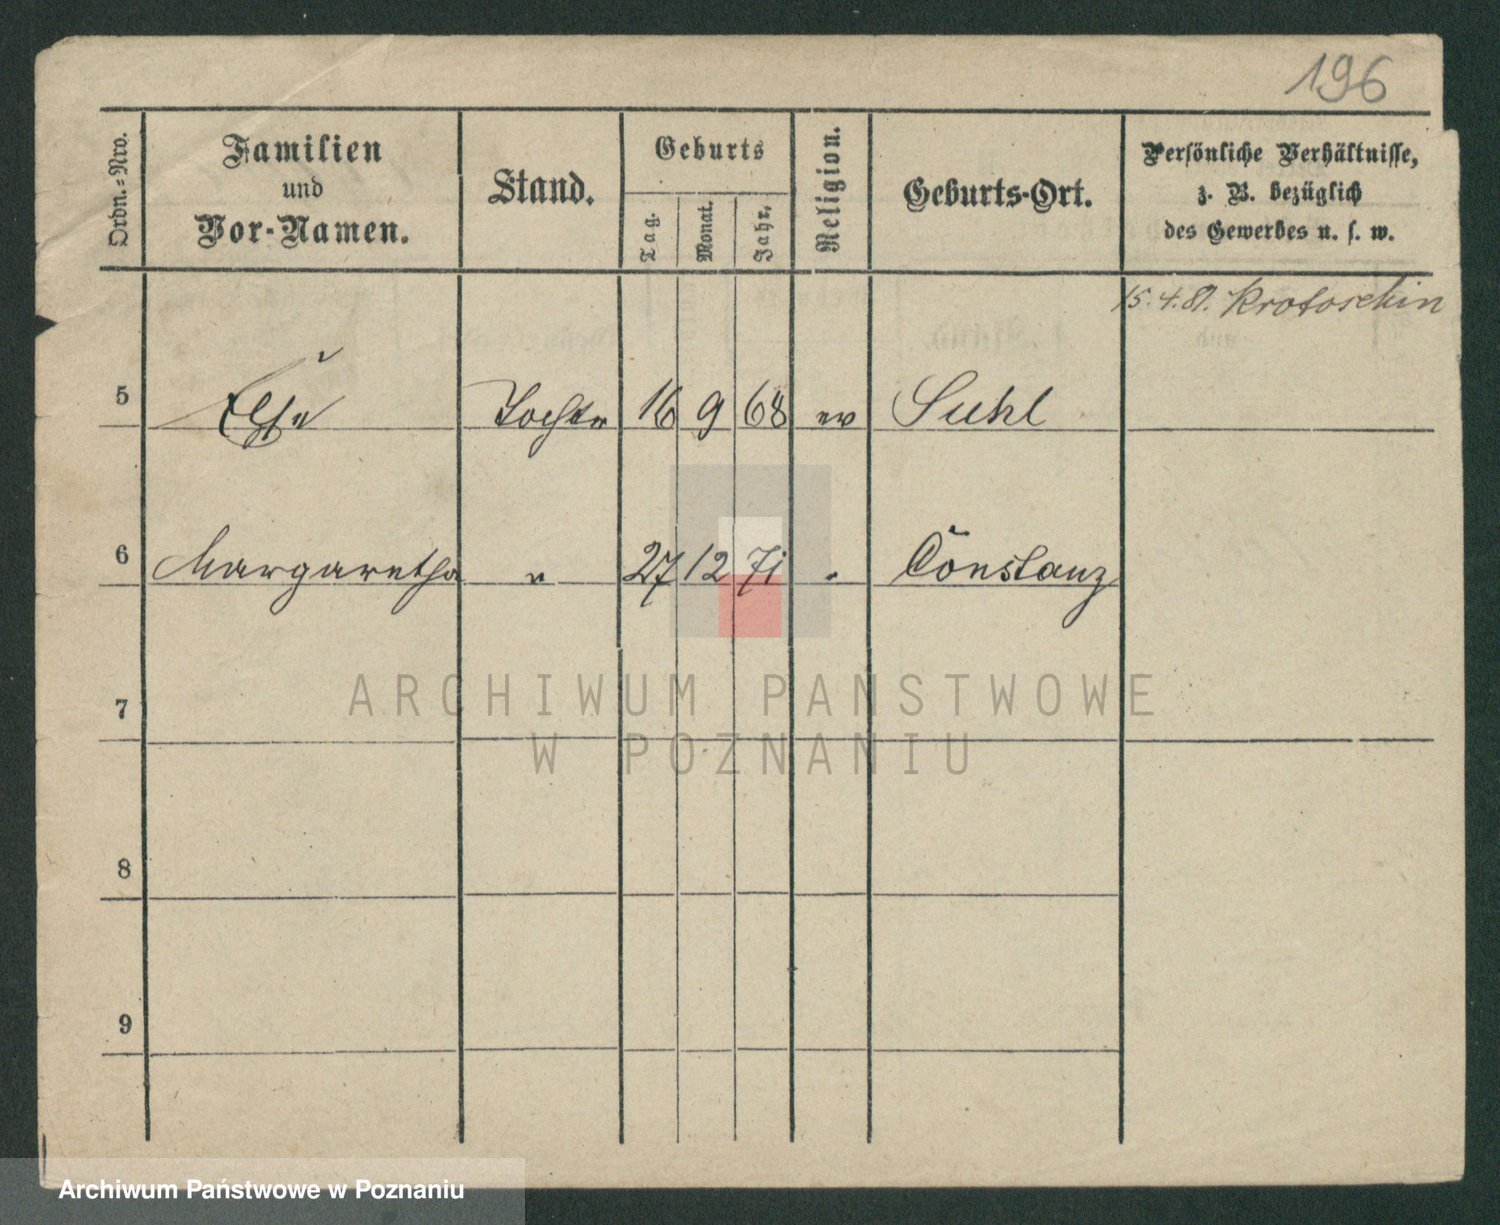 196
Ordn.-Nro.
Familien
und
Vor-Namen.
Stand.
Geburts
Tag.
Monat.
Jahr.
Religion.
Geburts-Ort.
Persönliche Verhältnisse,
z. B. bezüglich
des Gewerbes u. s. w.
15.4.81. Krotoschin
5 Else Tochter 16 9 68 ev Suhl
6 Margaretha " 27 12 71 " Constanz
7
ARCHIWUM PAŃSTWOWE
W POZNANIU
8
9
Archiwum Państwowe w Poznaniu